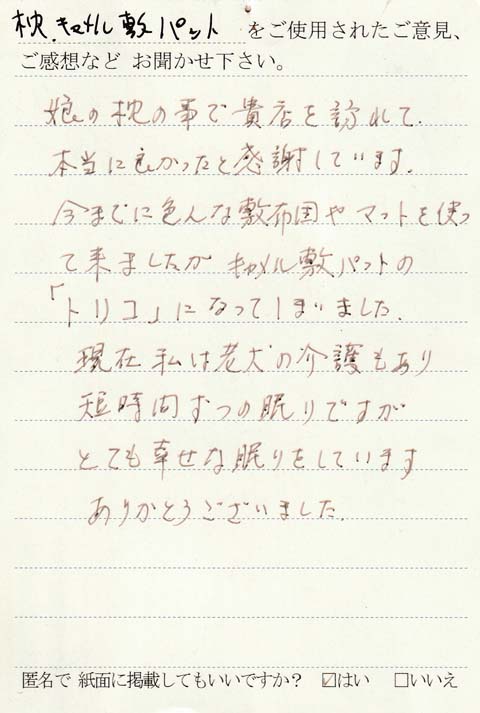 枕、キャメル敷パット をご使用されたご意見、
ご感想など お聞かせ下さい。
娘の枕の事で貴店を訪れて、
本当に良かったと感謝しています。
今までに色んな敷布団やマットを使っ
て来ましたが キャメル敷パットの
「トリコ」になってしまいました。
現在私は老犬の介護もあり
短時間ずつの眠りですが
とても幸せな眠りをしています
ありがとうございました。
匿名で 紙面に掲載してもいいですか? ☑はい □いいえ